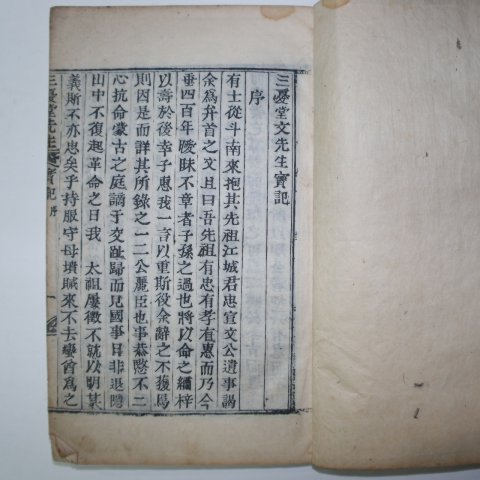 三憂堂文先生實記
序
有士從斗南來抱其先祖江城君忠宣文公遺事謁
余爲弁首之文且曰吾先祖有忠有孝有惠而乃今
垂四百年曖昧不章者子孫之過也將以命之繡梓
以壽於後幸子惠我一言以重斯役余辭之不獲焉
則因是而詳其所錄之一二公麗臣也事恭愍不二
心抗命蒙古之庭謫于交趾歸而見國事日非退隱
山中不復起革命之日我 太祖屢徵不就以明其
義斯不亦忠矣乎持服守母墳賊來不去巒首爲之
三憂堂先生實記 序 一